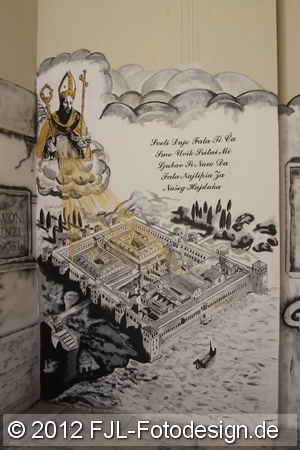 Sveti Duje Fala Ti Ča
Smo Uvik Svitai Mi
Ljubav Si Naša Da
Fala Najlipša Za
Našeg Hajduka
© 2012 FJL-Fotodesign.de